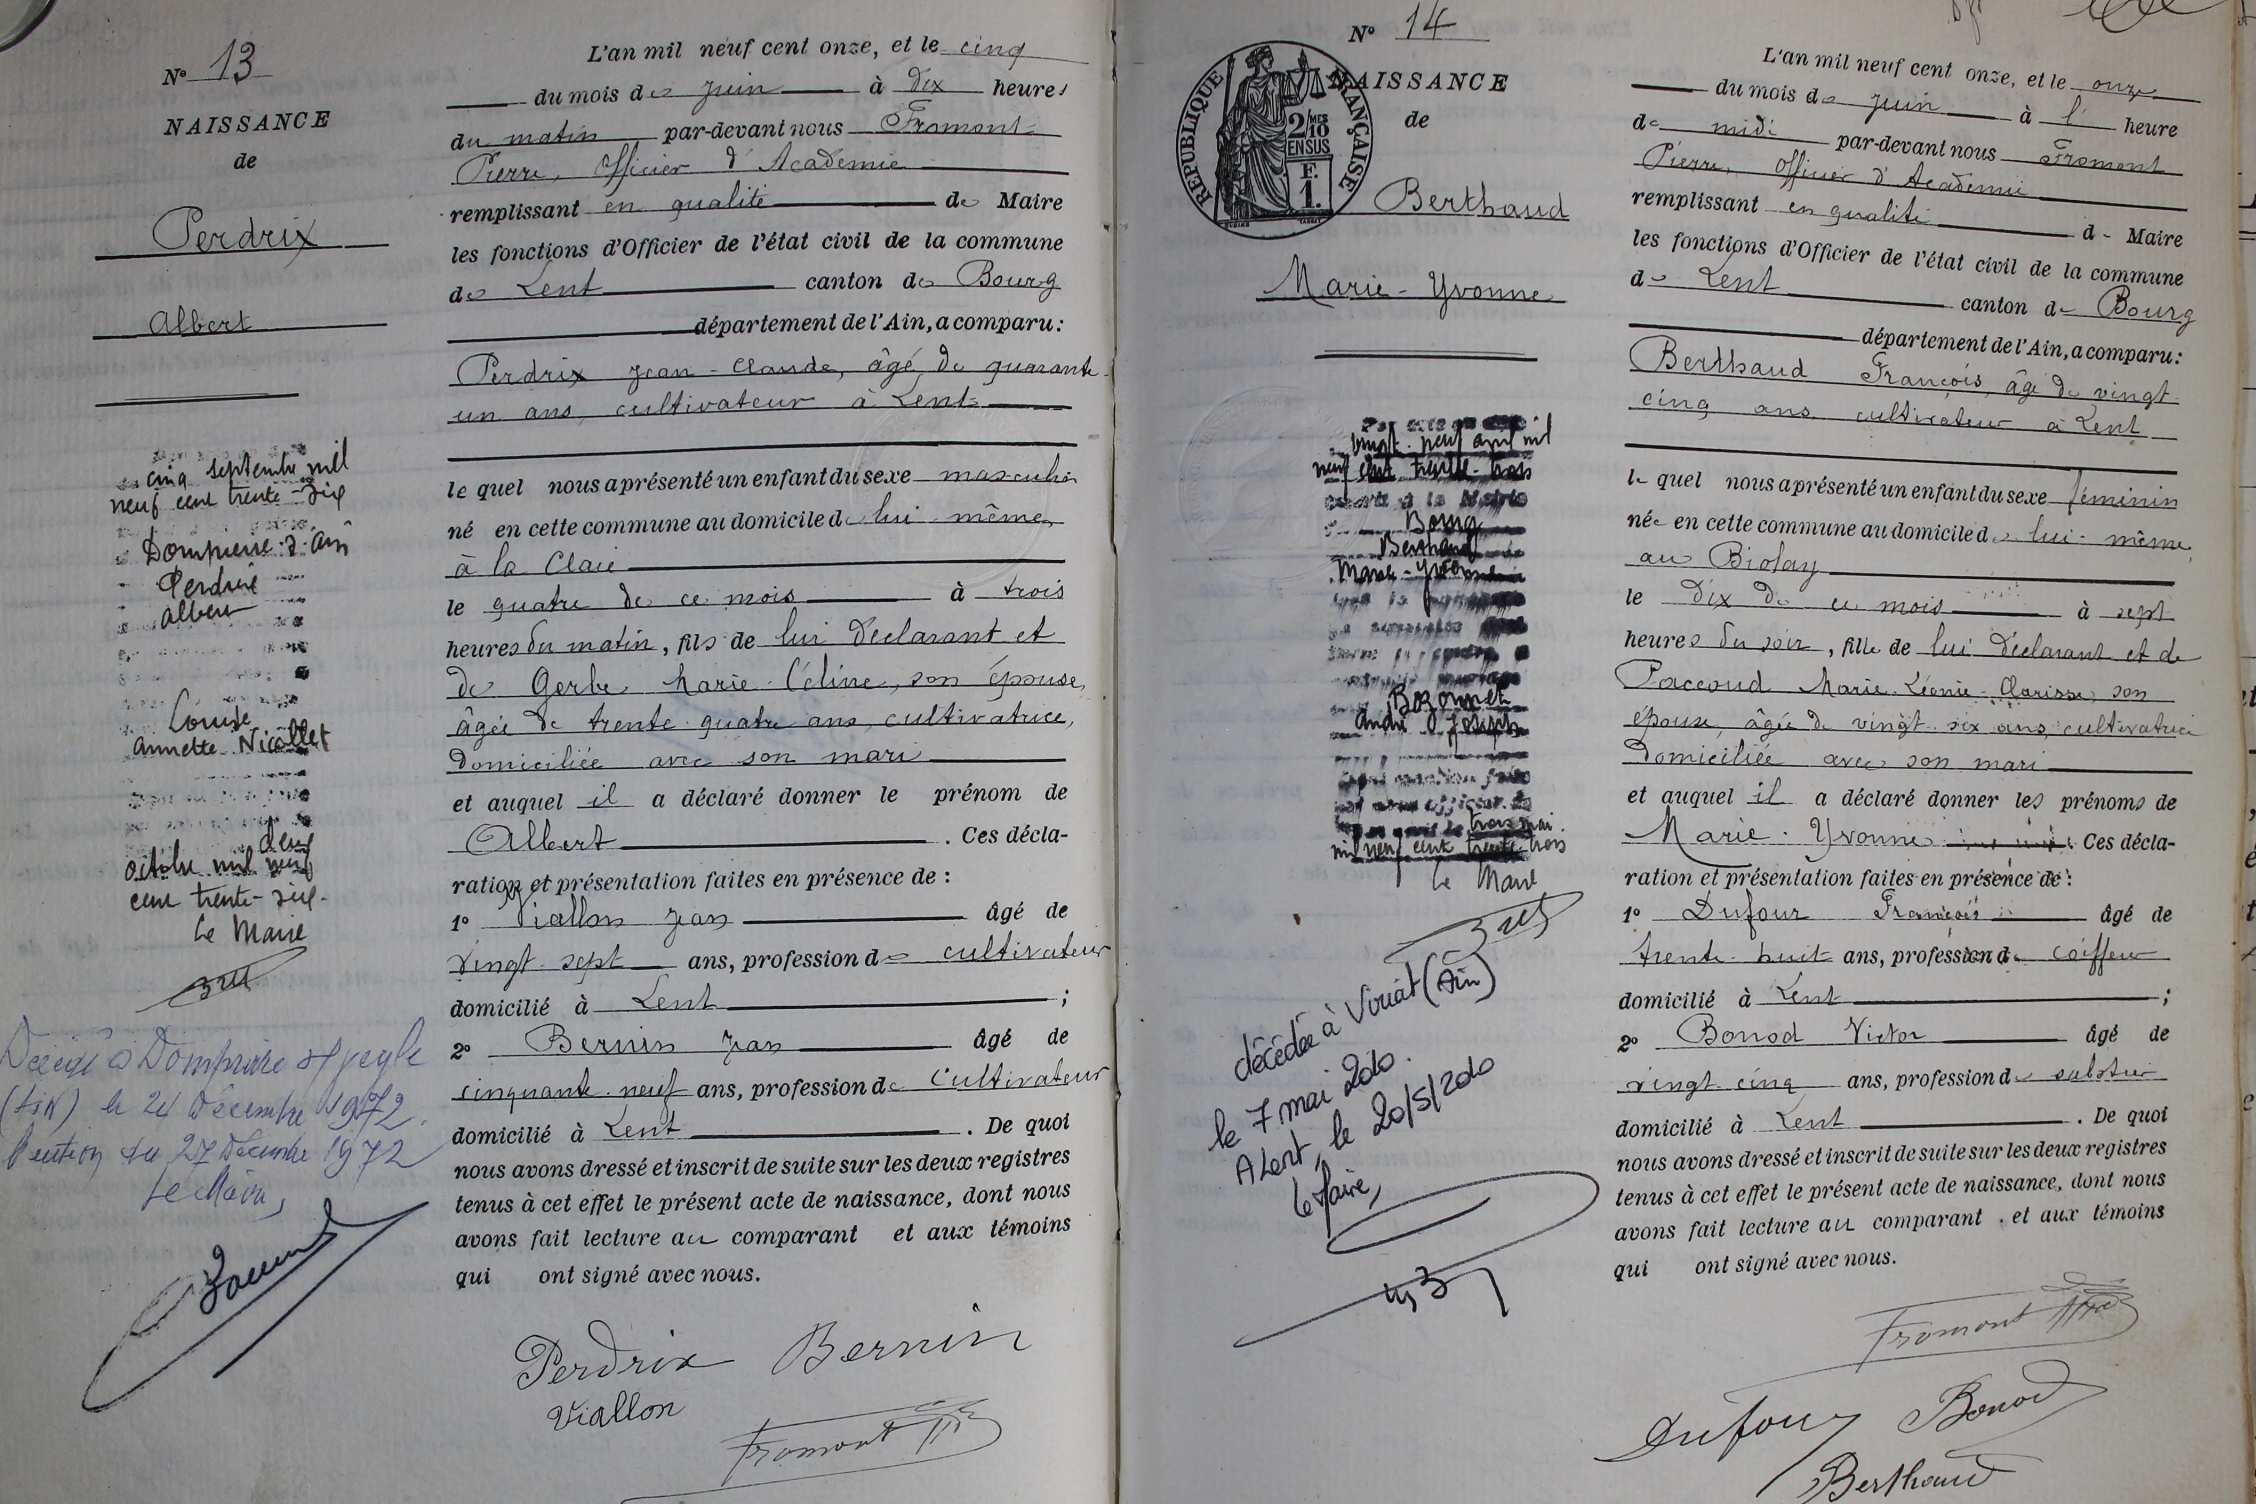 N° 13
NAISSANCE
de
Perdrix
Albert
cinq septembre mil
neuf cent trente-six
Dompierre-s-Ain
Perdrix
Albert
Louise
Annette Nicollet
deux
octobre mil neuf
cent trente-six
Le Maire
Décédé à Dompierre s/Veyle
(Ain) le 24 Décembre 1972.
Mention du 27 Décembre 1972
Le Maire,
L'an mil neuf cent onze, et le cinq
du mois de juin à dix heures
du matin par-devant nous Fromont
Pierre, Officier d'Académie
remplissant en qualité de Maire
les fonctions d'Officier de l'état civil de la commune
de Lent canton de Bourg
département de l'Ain, a comparu:
Perdrix Jean-Claude, âgé de quarante-
un ans, cultivateur à Lent
lequel nous a présenté un enfant du sexe masculin
né en cette commune au domicile de lui-même,
à la Claie
le quatre de ce mois à trois
heures du matin, fils de lui déclarant et
de Gerbe Marie-Céline, son épouse,
âgée de trente-quatre ans, cultivatrice,
domiciliée avec son mari
et auquel il a déclaré donner le prénom de
Albert . Ces décla-
ration et présentation faites en présence de :
1° Viallon Jean âgé de
vingt-sept ans, profession de cultivateur
domicilié à Lent ;
2° Bernin Jean âgé de
cinquante-neuf ans, profession de cultivateur
domicilié à Lent . De quoi
nous avons dressé et inscrit de suite sur les deux registres
tenus à cet effet le présent acte de naissance, dont nous
avons fait lecture au comparant et aux témoins
qui ont signé avec nous.
Perdrix Bernin
Viallon
Fromont
N° 14
NAISSANCE
de
REPUBLIQUE FRANÇAISE
2/10 MES
EN SUS
F.
1.
Berthaud
Marie-Yvonne
vingt-neuf avril mil
neuf cent trente-trois
Bourg
Berthaud
Marie-Yvonne
Bozonnet
André Joseph
trois mai
mil neuf cent trente-trois
Le Maire
décédée à Viriat (Ain)
le 7 mai 2010.
A Lent, le 20/5/2010
Le Maire,
L'an mil neuf cent onze, et le onze
du mois de juin à l' heure
de midi par-devant nous Fromont
Pierre, Officier d'Académie
remplissant en qualité de Maire
les fonctions d'Officier de l'état civil de la commune
de Lent canton de Bourg
département de l'Ain, a comparu:
Berthaud François, âgé de vingt-
cinq ans cultivateur à Lent
lequel nous a présenté un enfant du sexe féminin
née en cette commune au domicile de lui-même,
au Biolay
le dix de ce mois à sept
heures du soir, fille de lui déclarant et de
Paccoud Marie-Léonie-Clarisse, son
épouse, âgée de vingt-six ans, cultivatrice
domiciliée avec son mari
et auquel il a déclaré donner les prénoms de
Marie-Yvonne Ces décla-
ration et présentation faites en présence de :
1° Dufour François âgé de
trente-huit ans, profession de coiffeur
domicilié à Lent ;
2° Bonod Victor âgé de
vingt-cinq ans, profession de sabotier
domicilié à Lent . De quoi
nous avons dressé et inscrit de suite sur les deux registres
tenus à cet effet le présent acte de naissance, dont nous
avons fait lecture au comparant et aux témoins
qui ont signé avec nous.
Fromont
Dufour Bonod
Berthaud